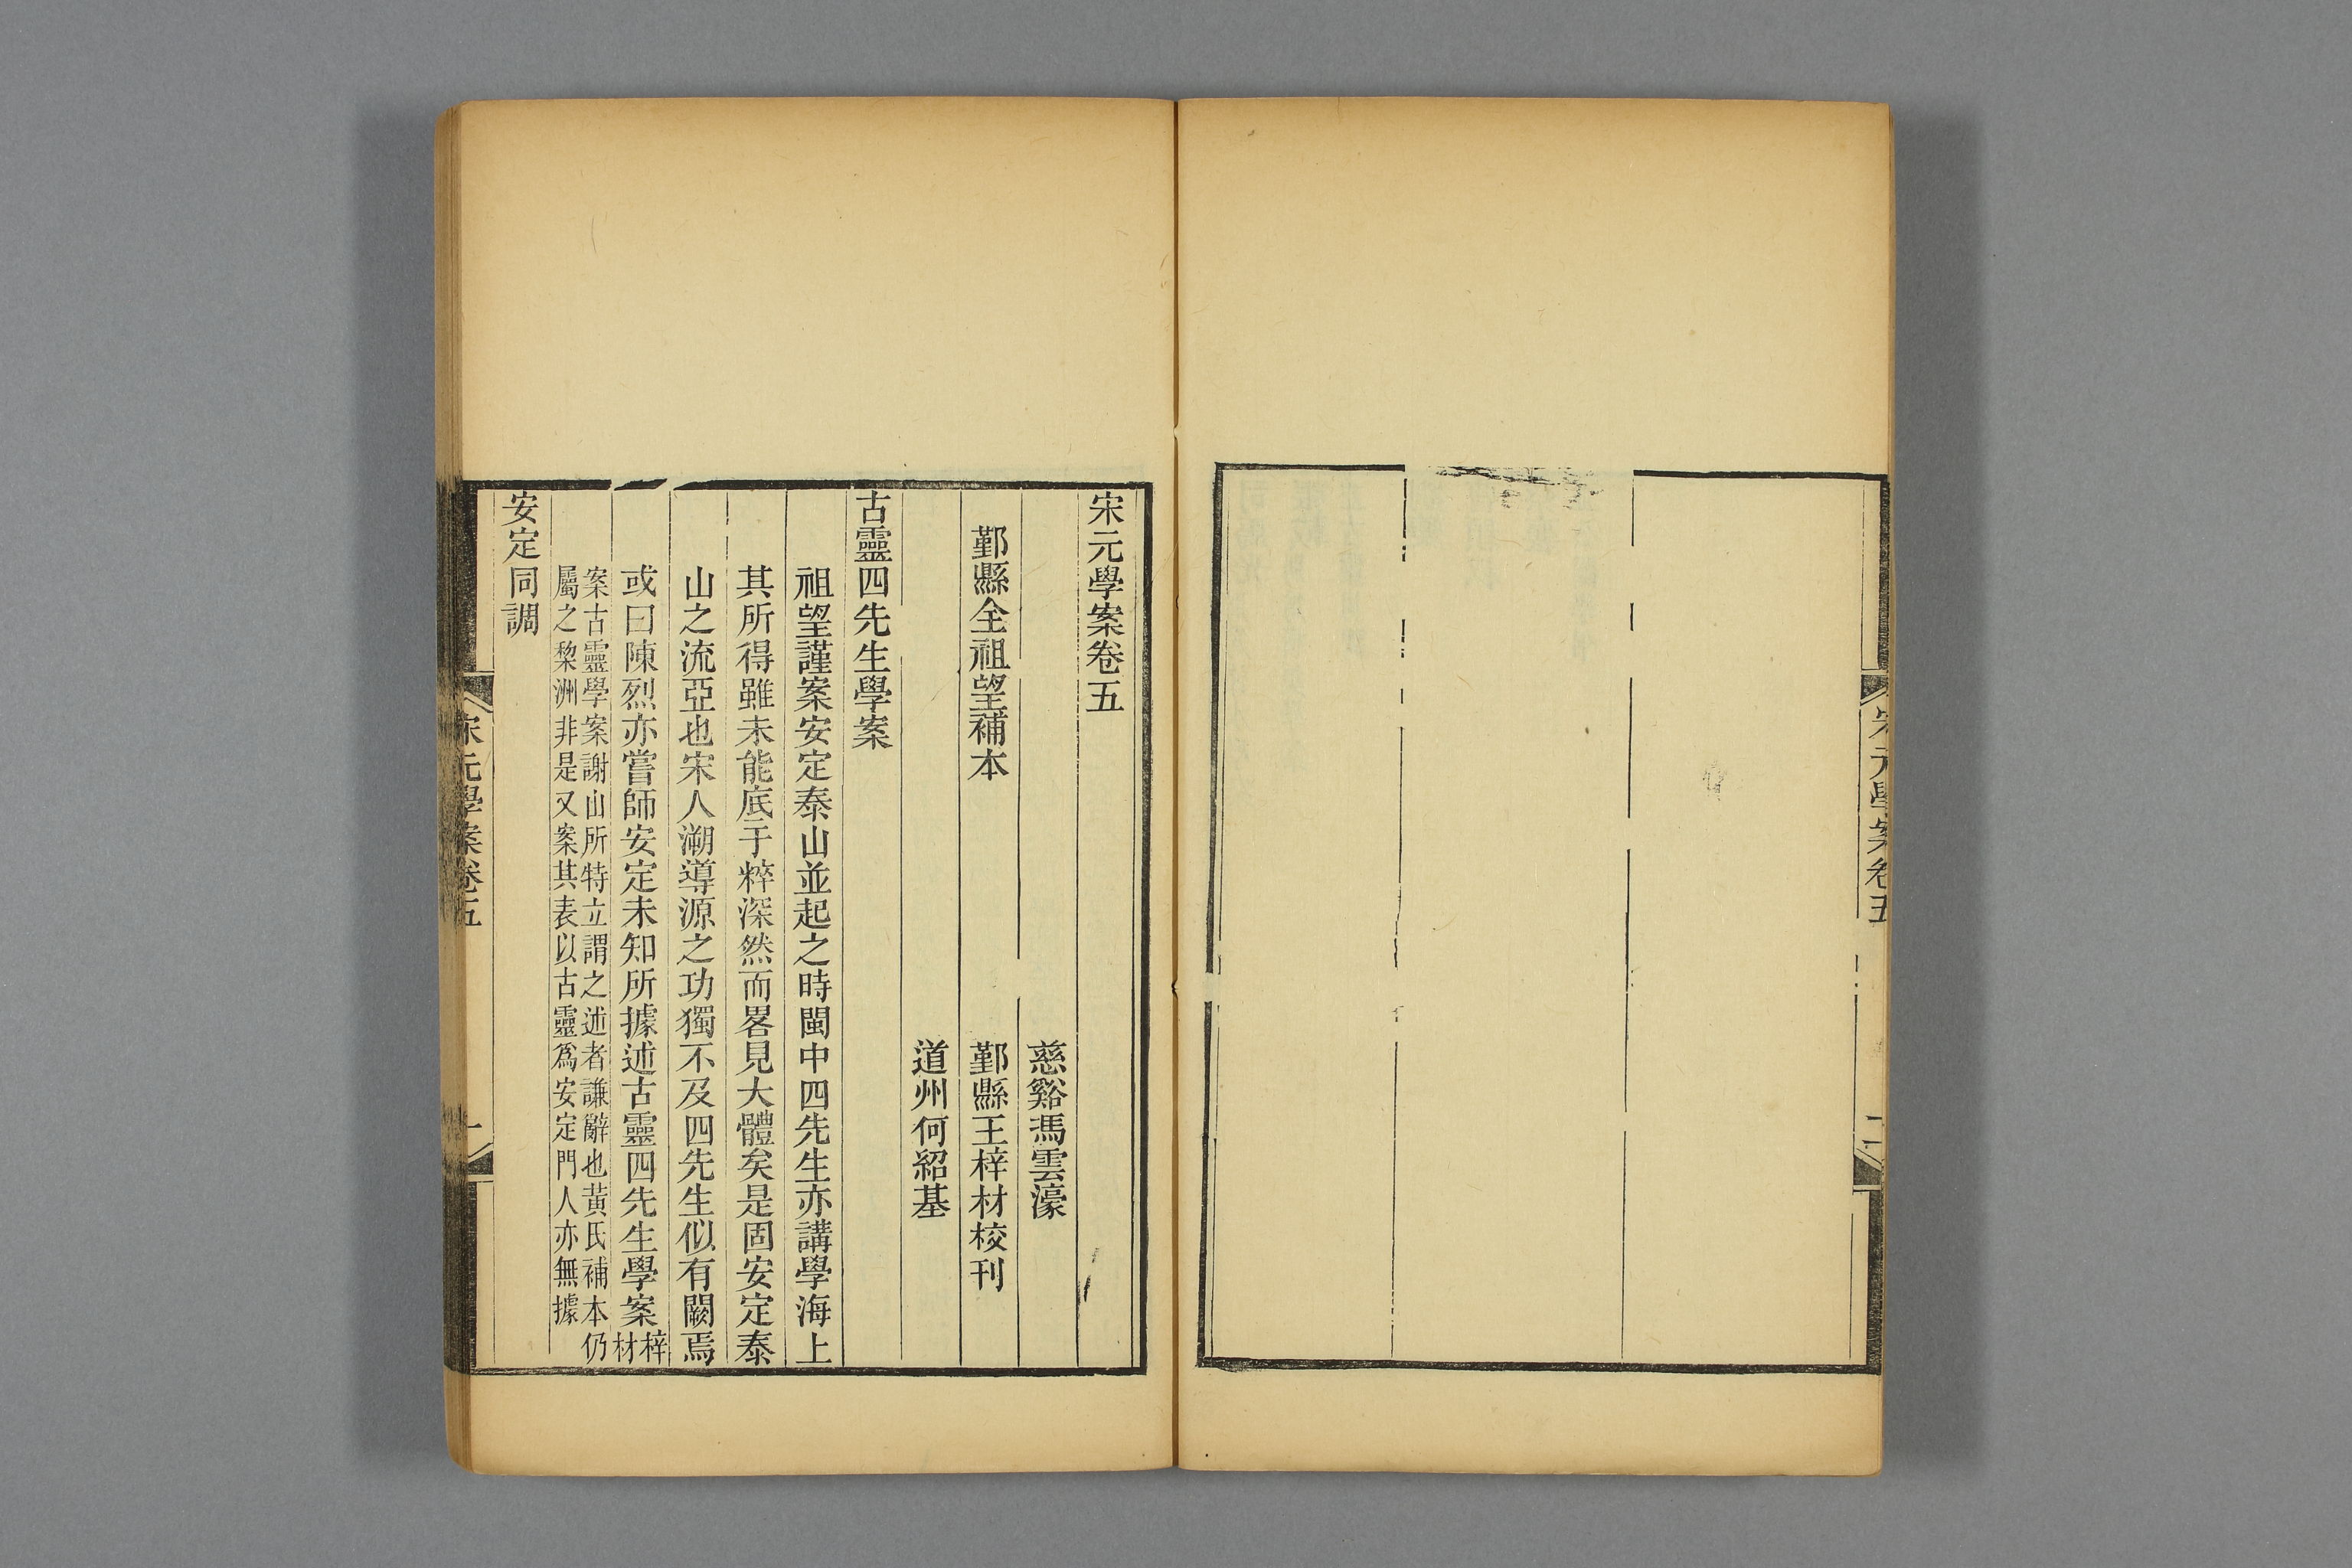 宋元學案卷五
二
宋元學案卷五
慈谿馮雲濠
鄞縣全祖望補本
鄞縣王梓材校刊
道州何紹基
古靈四先生學案
祖望謹案安定泰山並起之時閩中四先生亦講學海上
其所得雖未能底于粹深然而畧見大體矣是固安定泰
山之流亞也宋人溯導源之功獨不及四先生似有闕焉
或曰陳烈亦嘗師安定未知所據述古靈四先生學案梓材
案古靈學案謝山所特立謂之述者謙辭也黃氏補本仍
屬之黎洲非是又案其表以古靈爲安定門人亦無據
安定同調
宋元學案卷五